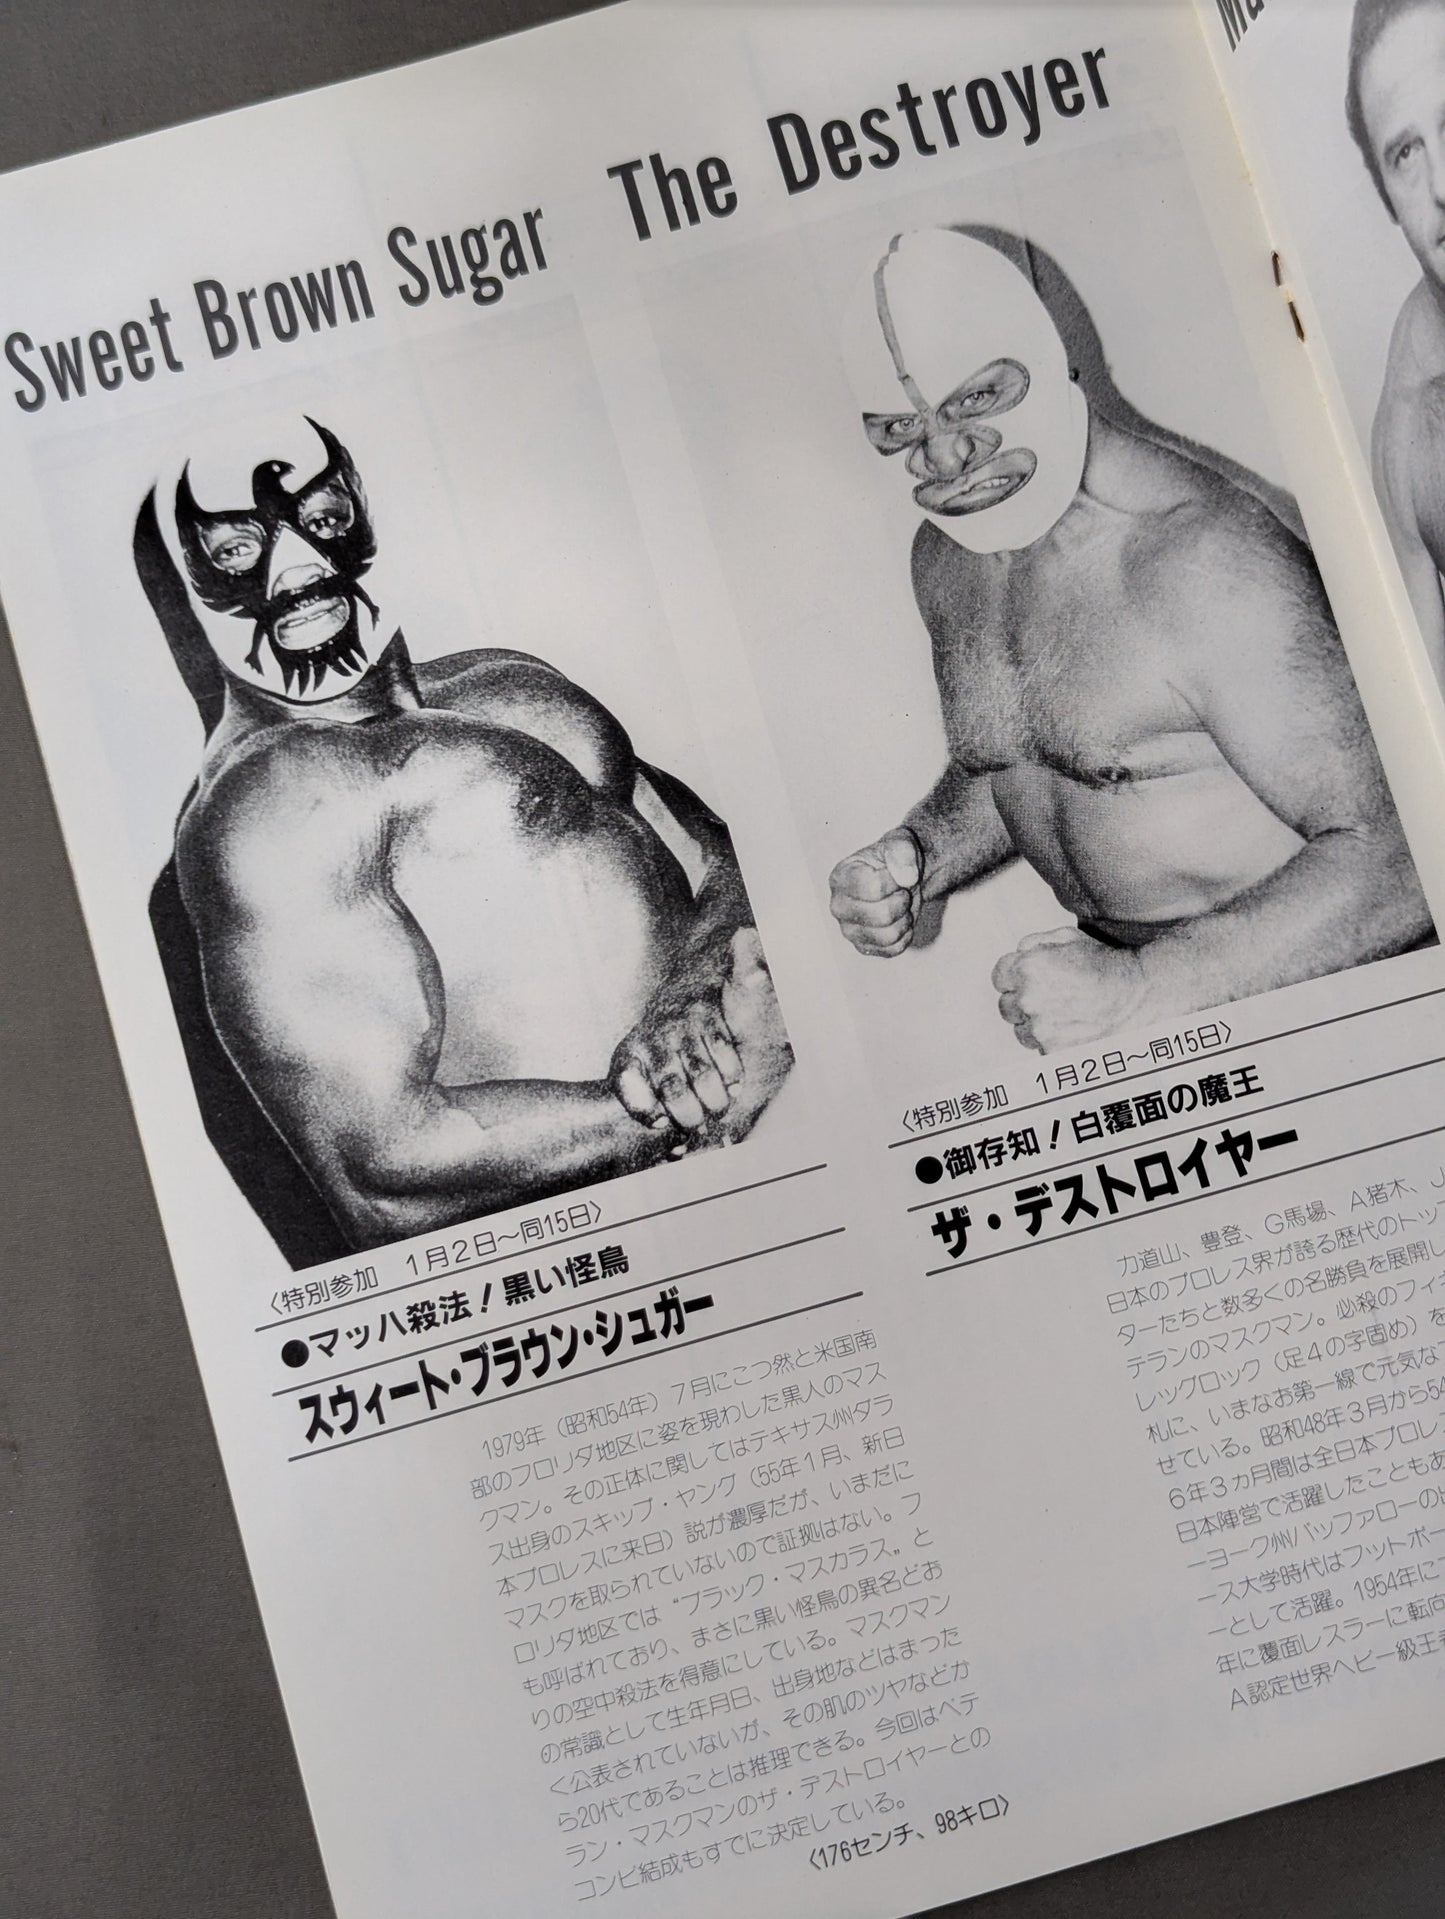 Sweet Brown Sugar
The Destroyer
〈特別参加　1月2日〜同15日〉
●マッハ殺法！黒い怪鳥
スウィート・ブラウン・シュガー
1979年（昭和54年）7月にこつ然と米国南
部のフロリダ地区に姿を現わした黒人のマス
クマン。その正体に関してはテキサス州ダラ
ス出身のスキップ・ヤング（55年1月、新日
本プロレスに来日）説が濃厚だが、いまだに
マスクを取られていないので証拠はない。フ
ロリダ地区では“ブラック・マスカラス„と
も呼ばれており、まさに黒い怪鳥の異名どお
りの空中殺法を得意にしている。マスクマン
の常識として生年月日、出身地などはまった
く公表されていないが、その肌のツヤなどか
ら20代であることは推理できる。今回はベテ
ラン・マスクマンのザ・デストロイヤーとの
コンビ結成もすでに決定している。
〈176センチ、98キロ〉
〈特別参加　1月2日〜同15日〉
●御存知！白覆面の魔王
ザ・デストロイヤー
力道山、豊登、G馬場、A猪木、J
日本のプロレス界が誇る歴代のトップ
ターたちと数多くの名勝負を展開し
テランのマスクマン。必殺のフィギ
レッグロック（足4の字固め）を
札に、いまなお第一線で元気な
せている。昭和48年3月から54
6年3ヵ月間は全日本プロレス
日本陣営で活躍したこともあ
ーヨーク州バッファローの出
ース大学時代はフットボー
ーとして活躍。1954年に
年に覆面レスラーに転向
A認定世界ヘビー級王